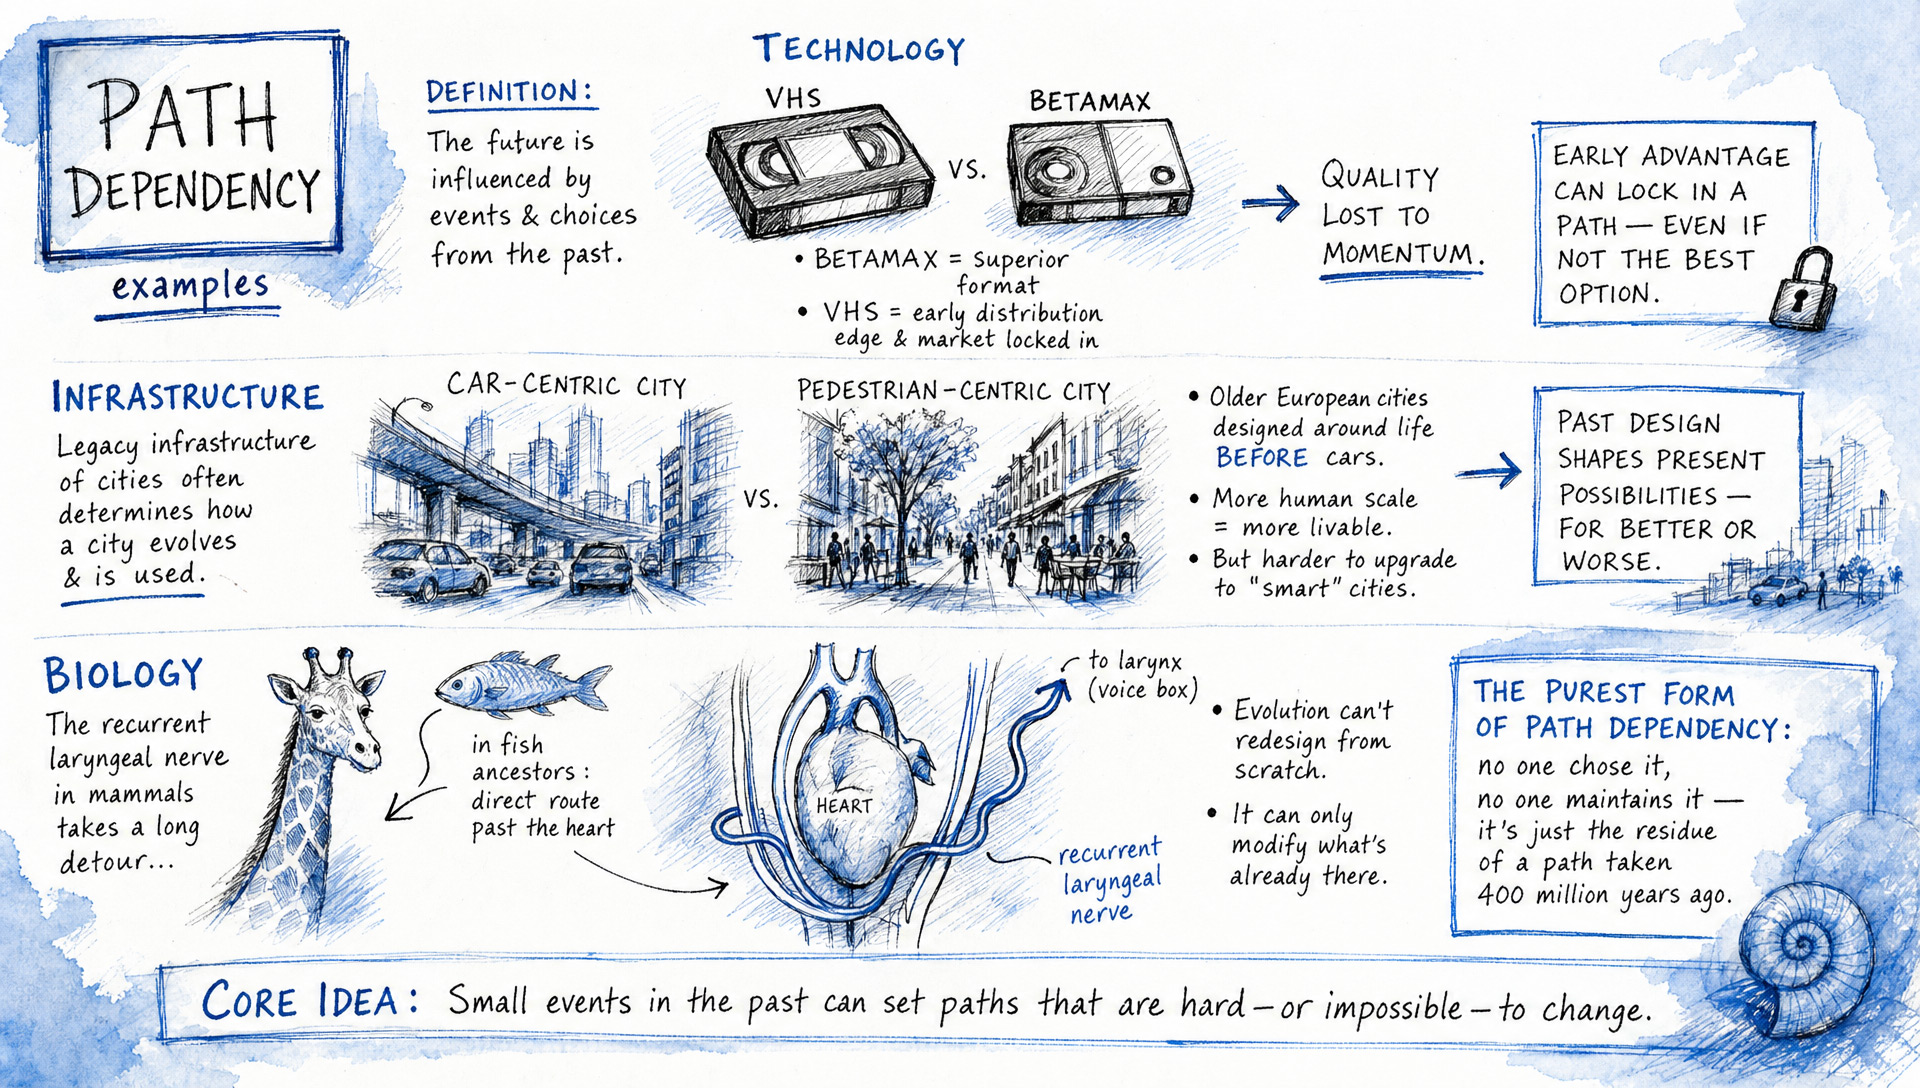 PATH
DEPENDENCY
examples
DEFINITION:
The future is
influenced by
events & choices
from the past.
TECHNOLOGY
VHS
VS.
BETAMAX
• BETAMAX = superior
format
• VHS = early distribution
edge & market locked in
QUALITY
LOST TO
MOMENTUM.
EARLY ADVANTAGE
CAN LOCK IN A
PATH — EVEN IF
NOT THE BEST
OPTION.
INFRASTRUCTURE
Legacy infrastructure
of cities often
determines how
a city evolves
& is used.
CAR-CENTRIC CITY
VS.
PEDESTRIAN-CENTRIC CITY
• Older European cities
designed around life
BEFORE cars.
• More human scale
= more livable.
• But harder to upgrade
to "smart" cities.
PAST DESIGN
SHAPES PRESENT
POSSIBILITIES —
FOR BETTER OR
WORSE.
BIOLOGY
The recurrent
laryngeal nerve
in mammals
takes a long
detour...
in fish
ancestors :
direct route
past the heart
HEART
to larynx
(voice box)
recurrent
laryngeal
nerve
• Evolution can't
redesign from
scratch.
• It can only
modify what's
already there.
THE PUREST FORM
OF PATH DEPENDENCY:
no one chose it,
no one maintains it —
it's just the residue
of a path taken
400 million years ago.
CORE IDEA: Small events in the past can set paths that are hard – or impossible – to change.